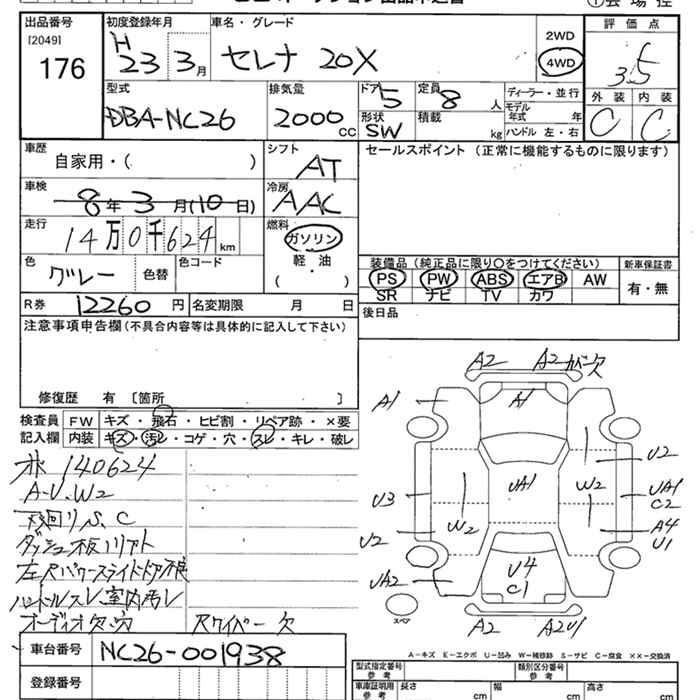 出品番号
[2049]
176
初度登録年月
H
23 3月
車名・グレード
セレナ 20X
2WD
4WD
評価点
3.5
外装 内装
C C
型式
DBA-NC26
排気量
2000 CC
ドア 5
形状
SW
定員 8 人
積載 kg
ディーラー・並行
モデル
年式 年
ハンドル 左・右
車歴
自家用・( )
シフト
AT
セールスポイント (正常に機能するものに限ります)
車検
8年 3月(10日)
冷房
AAC
走行
14万0千624 km
燃料
ガソリン
軽・油
( ・ )
色
グレー
色替
色コード
装備品 (純正品に限り○をつけてください)
PS PW ABS エアB AW
SR ナビ TV カワ
新車保証書
有・無
R券 12260 円
名変期限 月 日
後日品
注意事項申告欄 (不具合内容等は具体的に記入して下さい)
修復歴 有 [箇所 ]
検査員
記入欄
FW キズ・飛石・ヒビ割・リペア跡・×要
内装 キズ・汚レ・コゲ・穴・スレ・キレ・破レ
140624
A-U.W2
下廻りS.C
ダッシュ板リフト
ハンドルスレ 室内汚レ
オーディオ欠
Rワイパー欠
A2 A2 カバー欠
A1 A1
U2
U3 UA1 W2 UA1
C2
W2
A4
U2 U1
UA2 U4
C1
スペア
A2 A2U1
車台番号 NC26-001938
登録番号
A-キズ E-エクボ U-凹み W-補修跡 S-サビ C-腐食 ××-交換済
型式指定番号
参考
類別区分番号
参考
車庫証明用
参考
長さ cm
幅 cm
高さ cm